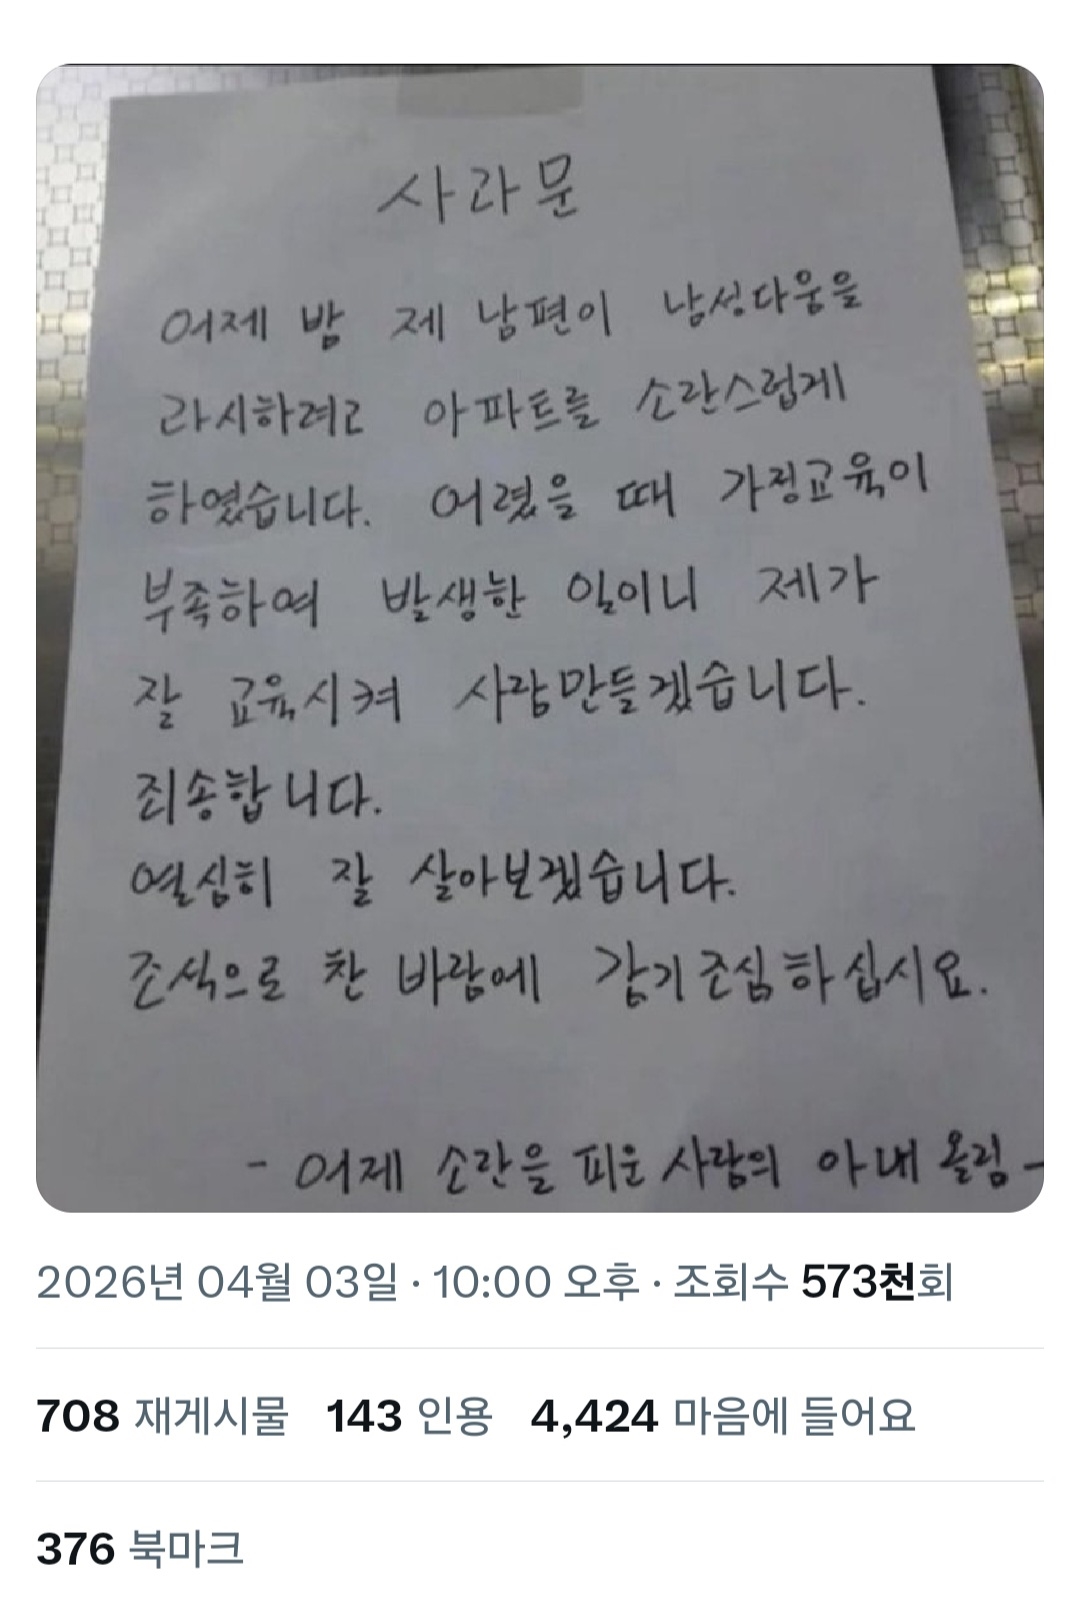 사과문
어제 밤 제 남편이 남성다움을
과시하려고 아파트를 소란스럽게
하였습니다. 어렸을 때 가정교육이
부족하여 발생한 일이니 제가
잘 교육시켜 사람만들겠습니다.
죄송합니다.
열심히 잘 살아보겠습니다.
조석으로 찬 바람에 감기조심하십시요.
- 어제 소란을 피운 사람의 아내 올림 -
2026년 04월 03일 · 10:00 오후 · 조회수 573천회
708 재게시물 143 인용 4,424 마음에 들어요
376 북마크